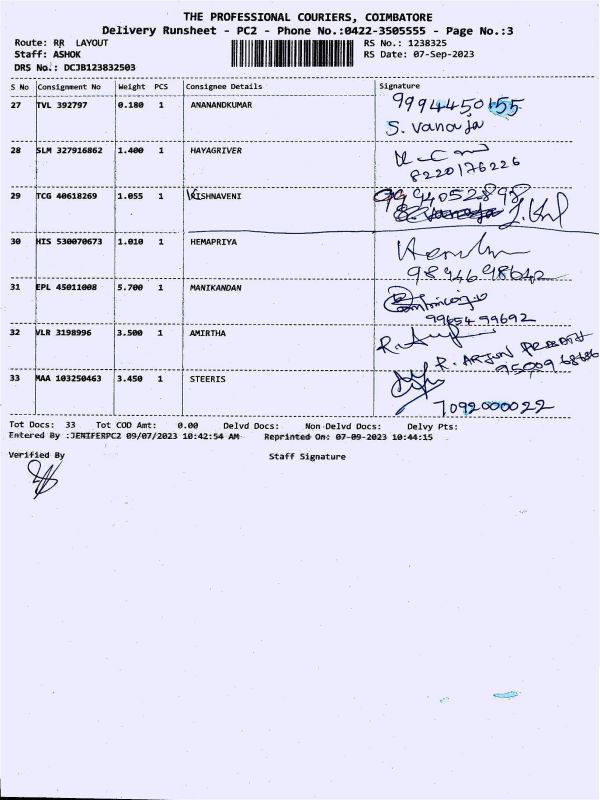 THE PROFESSIONAL COURIERS, COIMBATORE
Delivery Runsheet - PC2 - Phone No.:0422-3505555 - Page No.:3
Route: RR LAYOUT RS No.: 1238325
Staff: ASHOK RS Date: 07-Sep-2023
DRS No.: DCJB123832503
S No Consignment No Weight PCS Consignee Details Signature
27 TVL 392797 0.180 1 ANANANDKUMAR 9994450155
S. Vanaja
28 SLM 327916862 1.400 1 HAYAGRIVER
8220176226
29 TCG 40618269 1.055 1 KRISHNAVENI 9994052898
30 HIS 530070673 1.010 1 HEMAPRIYA
9894698642
31 EPL 45011008 5.700 1 MANIKANDAN
9965499692
32 VLR 3198996 3.500 1 AMIRTHA
R. ARJUN
9500968686
33 MAA 103250463 3.450 1 STEERIS
7092000022
Tot Docs: 33 Tot COD Amt: 0.00 Delvd Docs: Non-Delvd Docs: Delvy Pts:
Entered By :JENIFERPC2 09/07/2023 10:42:54 AM Reprinted On: 07-09-2023 10:44:15
Verified By Staff Signature